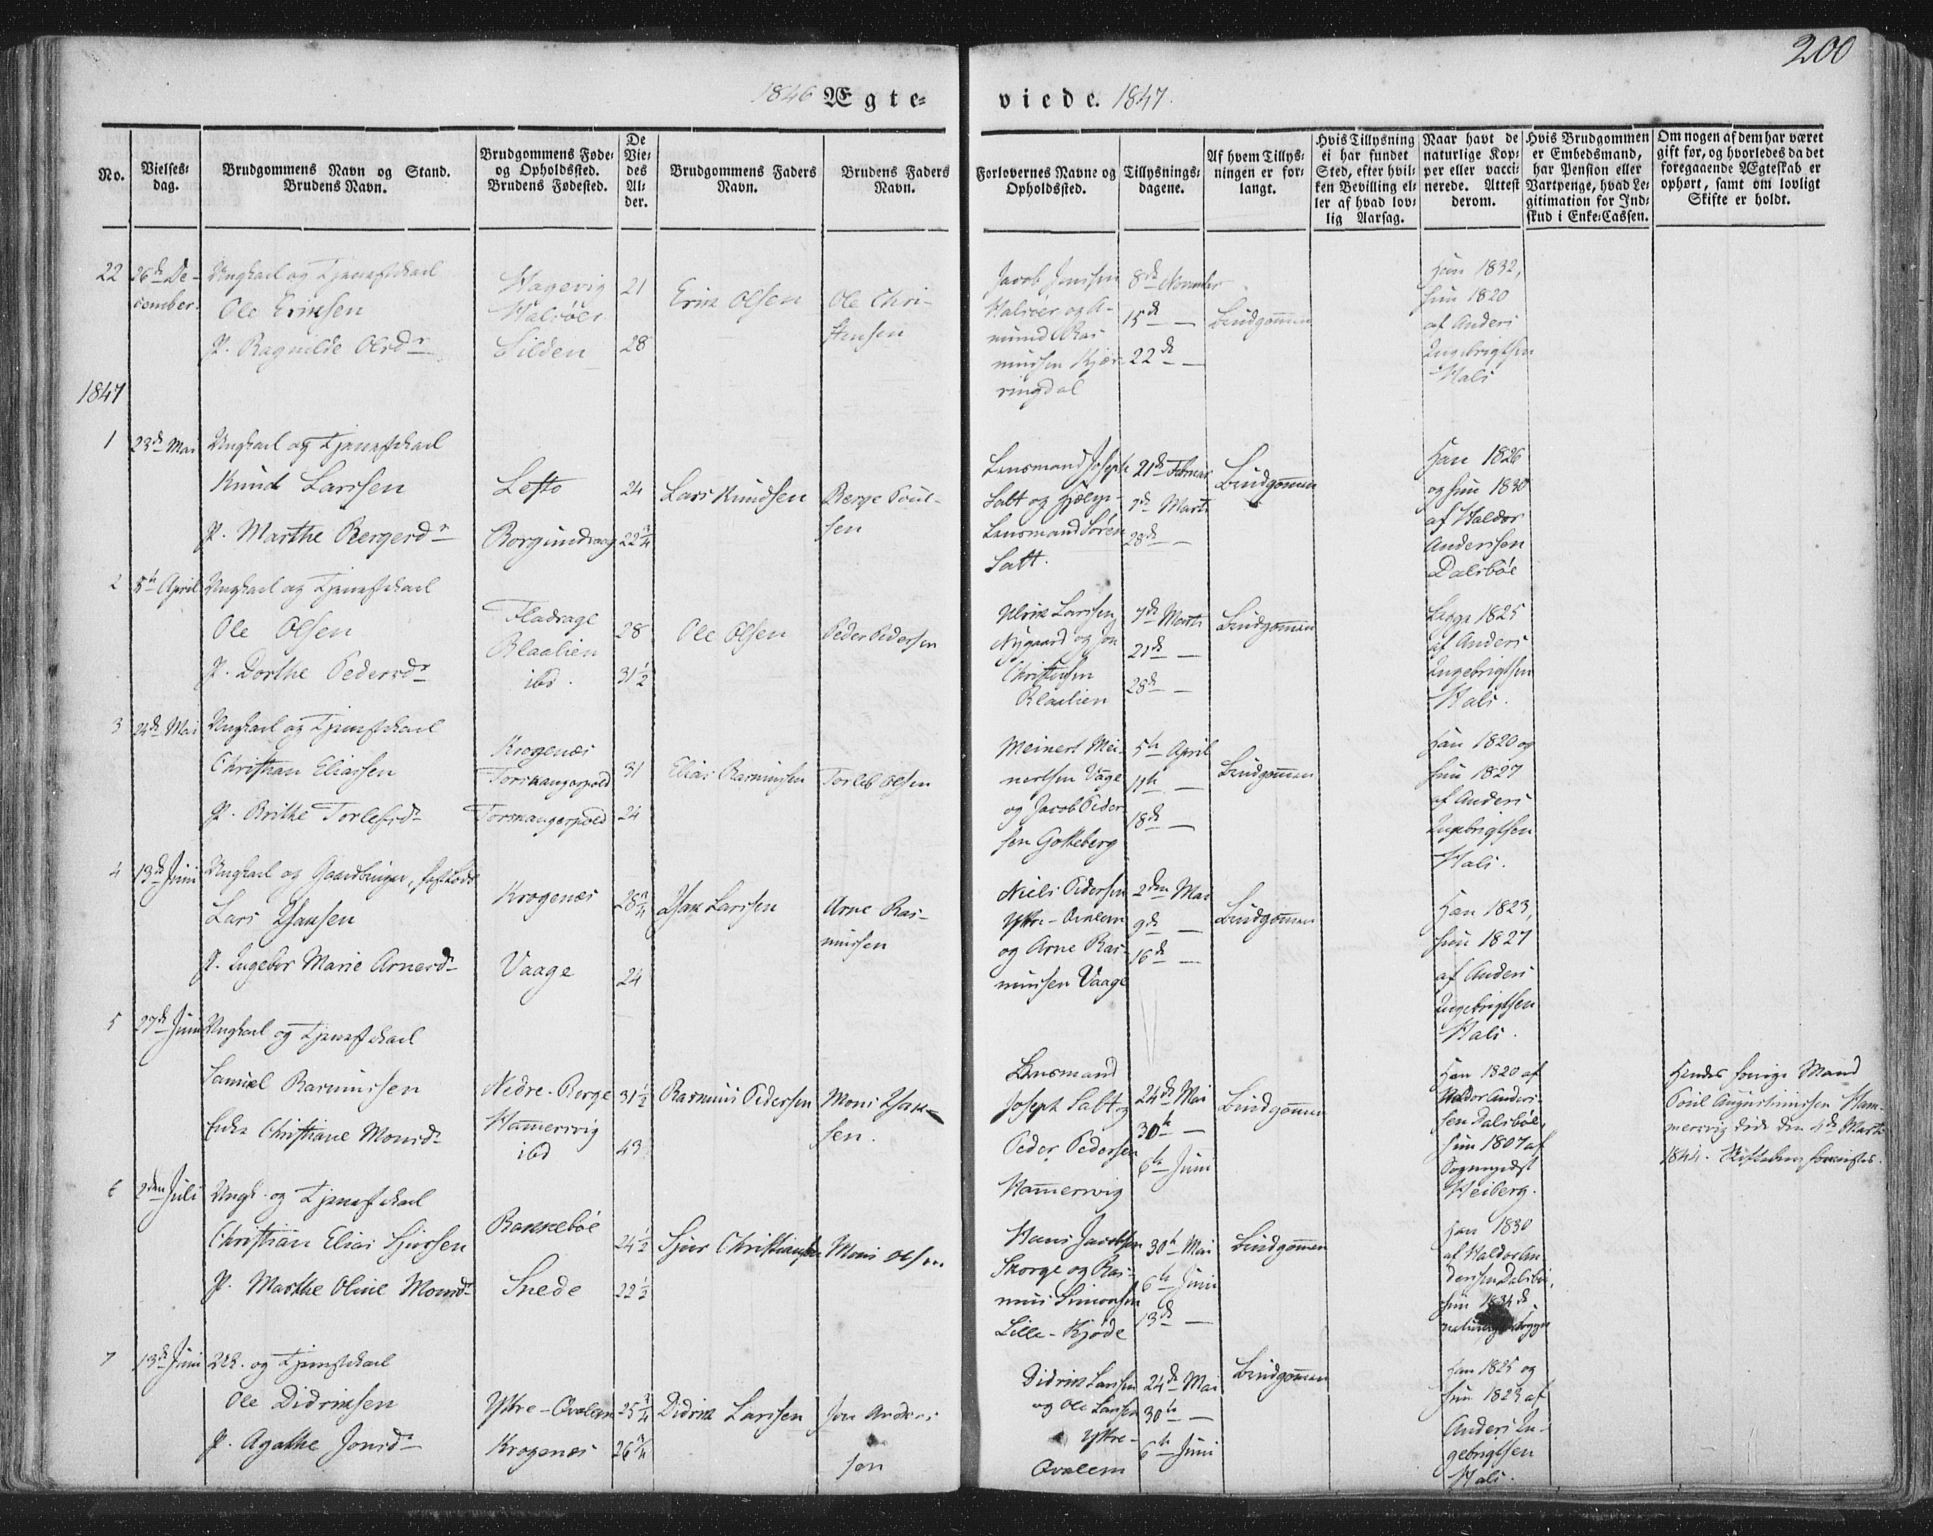 200
1846 Ægte-
viede. 1847.
No.
Vielses-
dag.
Brudgommens Navn og Stand.
Brudens Navn.
Brudgommens Føde-
og Opholdssted.
Brudens Fødested.
De
Vie-
des
Al-
der.
Brudgommens Faders
Navn.
Brudens Faders
Navn.
Forlovernes Navne og
Opholdssted.
Tillysnings-
dagene.
Af hvem Tillys-
ningen er for-
langt.
Hvis Tillysning
ei har fundet
Sted, efter hvil-
ken Bevilling el-
ler af hvad lov-
lig Aarsag.
Naar havt de
naturlige Kop-
per eller vacci-
nerede. Attest
derom.
Hvis Brudgommen
er Embedsmand,
har Pension eller
Vartpenge, hvad Le-
gitimation for Ind-
skud i Enke-Cassen.
Om nogen af dem har været
gift før, og hvorledes da det
foregaaende Ægteskab er
ophørt, samt om lovligt
Skifte er holdt.
22
26de De-
cember.
Ungkarl og Tjenestekarl
Ole Eriksen
P. Ragnilde Olsdr
Hagevig
Halsöer
Silden
21
28
Erik Olsen
Ole Chri-
stensen
Jacob Jensen
Halsöer og A-
mund Ras-
mussen Kjær-
ringdal
8de November
15de —
22de —
Brudgommen
Han 1832,
hun 1820
af Anders
Ingebrigtsen
Hals
1847
1
23de Mai
Ungkarl og Tjenestekarl
Knud Larssen
P. Marthe Bergersdr
Lefto
Borgundvaag
24
22 3/4
Lars Knudsen
Berge Poul-
sen
Lensmand Joseph
Salt og Hjelpe-
Lensmand Sören
Salt.
21de Februar
7de Marts
28de —
Brudgommen
Han 1826
og hun 1830
af Haldor
Anderssen
Dalsböe
2
5te April
Ungkarl og Tjenestekarl
Ole Olsen
P. Dorthe Pedersdr
Fladrage
Blaalien
ibd.
28
31 1/2
Ole Olsen
Peder Pedersen
Ulrik Larssen
Nygaard og Jon
Christensen
Blaalien
7de Marts
21de —
28de —
Brudgommen
Begge 1825
af Anders
Ingebrigtsen
Hals.
3
24de Mai
Ungkarl og Tjenestekarl
Christian Eliassen
P. Brithe Torlefsdr
Krogenæs
Torskangerpold
Torskangerpold
31
24
Elias Rasmussen
Torleb Olsen
Meinert Mei-
nertsen Vaage
og Jacob Peder-
sen Gotteberg
5te April
11te —
18de —
Brudgommen
Han 1820 og
hun 1827
af Anders
Ingebrigtsen
Hals.
4
13de Juni
Ungkarl og Gaardbruger,
Lars Isaksen
P. Ingebor Marie Arnesd
Krogenæs
Vaage
28 3/4
24
Isak Larssen
Arne Ras-
mussen
Niels Pedersen
Yttre-Ovalem
og Arne Ras-
mussen Vaage
2den Mai
9de —
16de —
Brudgommen
Han 1823,
hun 1827
af Anders
Ingebrigtsen
Hals.
5
27de Juni
Ungkarl og Tjenestekarl
Samuel Rasmussen
Enke Christiane Monsdr
Nedre-Berge
Hamersvig
ibd
31 1/2
43
Rasmus Pedersen
Mons Isak-
sen.
Lensmand
Joseph Salt og
Peder Pedersen
Hamersvig
24de Mai
30te —
6te Juni
Brudgommen
Han 1820 af
Haldor Anders-
sen Dalsböe,
hun 1807 af
Sogneprest
Heiberg.
Hendes forrige Mand
Poul Augustinussen Ham-
mersvig döde den 4de Marts
1844.
6
2den Juli
Ungk. og Tjenestekarl
Christian Elias Sjursen
P. Marthe Oline Monsdr
Bannebøe
Snede
24 1/2
22 1/2
Sjur Christiansen
Mons Olsen
Hans Jacobsen
Skorge og Ras-
mus Simonsen
Lille-Kjöde
30te Mai
6te Juni
13de —
Brudgommen
Han 1830
af Haldor An-
derssen Dalsböe,
hun 1834
7
13de Juni
Uk. og Tjenestekarl
Ole Didriksen
P. Agathe Jonsdr
Yttre-Ovalem
Krogenæs
25 3/4
26 3/4
Didrik Larssen
Jon Anders-
sen
Didrik Larssen
og Ole Larssen
Yttre-
Ovalem
24de Mai
30te —
6te Juni
Brudgommen
Han 1825 og
hun 1823 af
Anders In-
gebrigtsen
Hals.